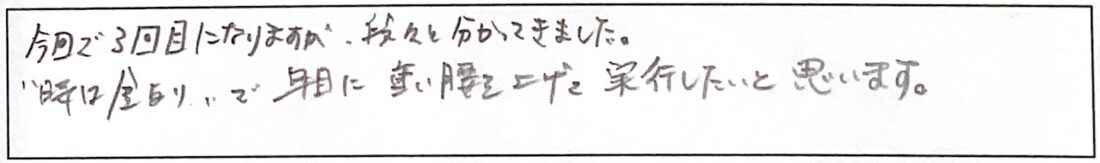 今回で3回目になりますが、段々と分かってきました。
"時は金なり"で早目に重い腰を上げて実行したいと思います。